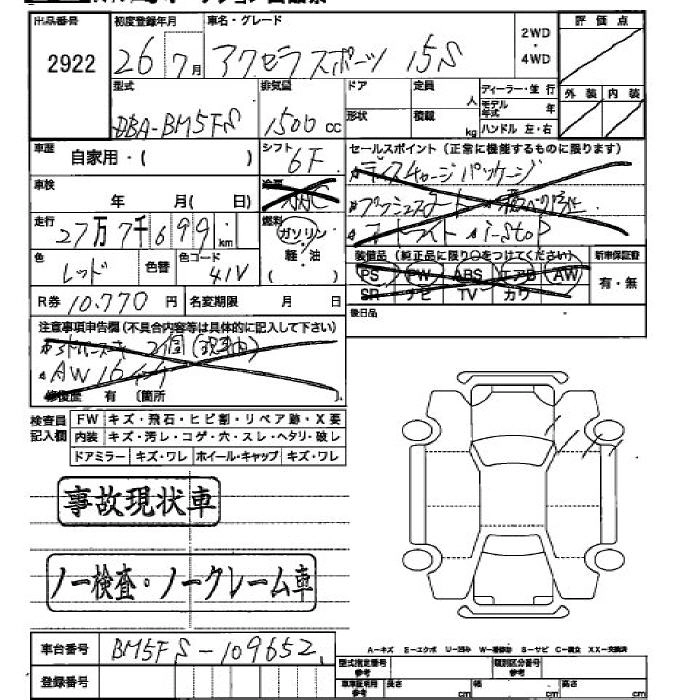 出品番号 初度登録年月 車名・グレード 2WD・4WD 評価点
2922 26 7月 アクセラスポーツ 15S
型式 排気量 ドア 定員 人 ディーラー・並行 外装 内装
DBA-BM5FS 1500cc 形状 積載 kg モデル年式 年
ハンドル 左・右
車歴 自家用・( ) シフト 6F セールスポイント(正常に機能するものに限ります)
ディスチャージパッケージ
車検 年 月( 日) 冷房 AAC
プッシュスタート
走行 27万7千699km 燃料 ガソリン・軽油( )
i-stop
色 レッド 色替 色コード 41V 装備品(純正品に限り○をつけてください) 新車保証書
PS PW ABS エアB AW 有・無
SR ナビ TV カワ
R券 10.770円 名変期限 月 日 後日品
注意事項申告欄(不具合内容等は具体的に記入して下さい)
2個
・AW16インチ
修復歴 有(箇所 ).
検査員記入欄 FW キズ・飛石・ヒビ割・リペア跡・X要
内装 キズ・汚レ・コゲ・穴・スレ・ヘタリ・破レ
ドアミラー キズ・ワレ ホイール・キャップ キズ・ワレ
事故現状車
ノー検査・ノークレーム車
車台番号 BM5FS-109652
A－キズ E－エクボ U－凹み W－補修跡 S－サビ C－腐食 XX－交換済
登録番号 型式指定番号 参考 類別区分番号 参考
車庫証明用 参考 長さ cm 幅 cm 高さ cm